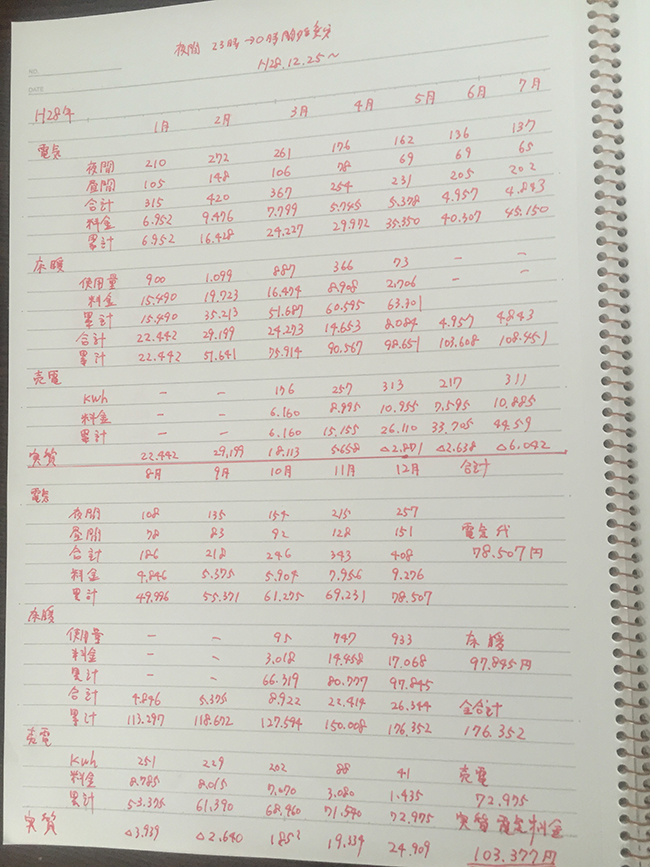 夜間 23時→0時間
H28.12.25〜
NO.
DATE
H28年
1月 2月 3月 4月 5月 6月 7月
電気
夜間 210 272 261 176 162 136 137
昼間 105 148 106 78 69 69 65
合計 315 420 367 254 231 205 202
料金 6.952 9.476 7.799 5.745 5.378 4.957 4.843
累計 6.952 16.428 24.227 29.972 35.350 40.307 45.150
床暖
使用量 900 1.099 887 366 73 − −
料金 15.490 19.723 16.474 8.908 2.706 − −
累計 15.490 35.213 51.687 60.595 63.301
合計 22.442 29.199 24.273 14.653 8.084 4.957 4.843
累計 22.442 51.641 75.914 90.567 98.651 103.608 108.451
売電
Kwh − − 176 257 313 217 311
料金 − − 6.160 8.995 10.955 7.595 10.885
累計 − − 6.160 15.155 26.110 33.705 44.59
実質 22.442 29.199 18.113 5.658 △2.871 △2.638 △6.042
8月 9月 10月 11月 12月 合計
電気
夜間 108 135 154 215 257
昼間 78 83 92 128 151 電気代
合計 186 218 246 343 408 78.507円
料金 4.846 5.375 5.904 7.956 9.276
累計 49.996 55.371 61.275 69.231 78.507
床暖
使用量 − − 95 747 933 床暖
料金 − − 3.018 14.458 17.068 97.845円
累計 − − 66.319 80.777 97.845
合計 4.846 5.375 8.922 22.414 26.344 全合計
累計 113.297 118.672 127.594 150.008 176.352 176.352
売電
Kwh 251 229 202 88 41 売電
料金 8.785 8.015 7.070 3.080 1.435 72.975
累計 53.375 61.390 68.460 71.540 72.975 実質電気料金
実質 △3.939 △2.640 1852 19.334 24.909 103.377円